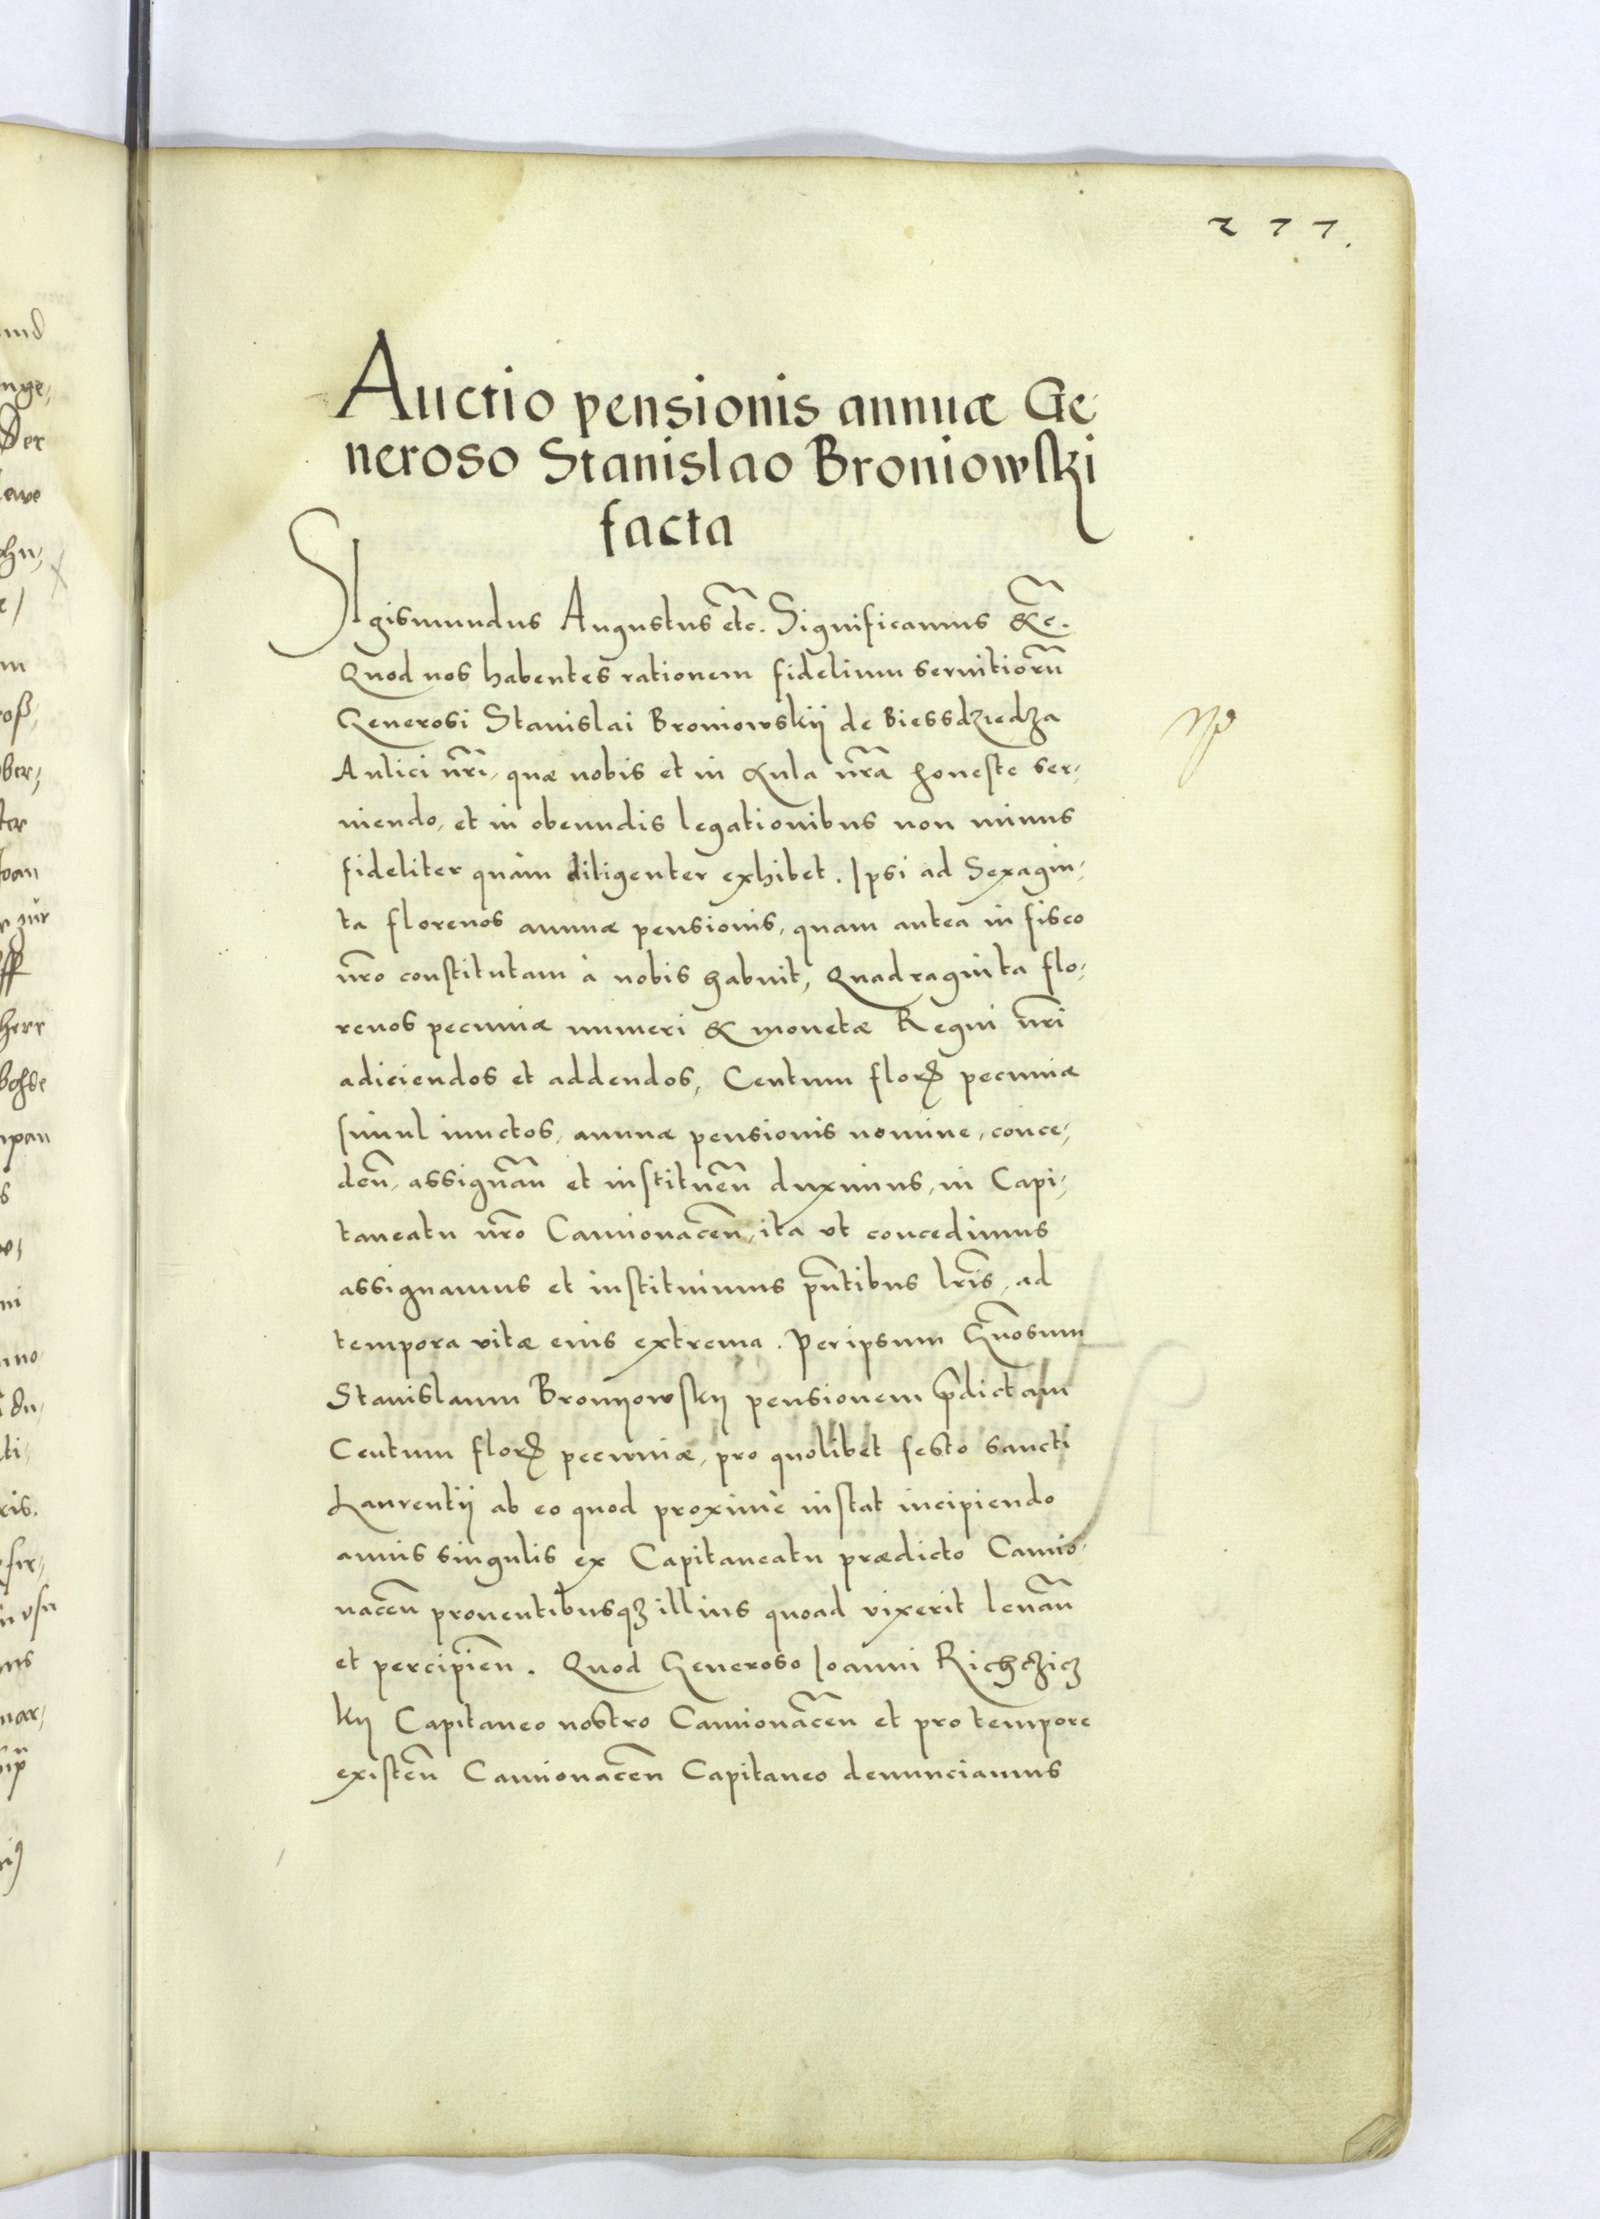 277.
Auctio pensionis annuæ Ge-
neroso Stanislao Broniowski
facta
SIgismundus Augustus etc̃. Significamus &c̃.
Quod nos habentes rationem fidelium seruitiorũ
Generosi Stanislai Broniowskij de Biessdziedza
Aulici nr̃i, quæ nobis et in Aula nr̃a honeste ser-
uiendo, et in obeundis legationibus non minus
fideliter quàm diligenter exhibet. Ipsi ad Sexagin-
ta florenos annuæ pensionis, quam antea in fisco
nr̃o constitutam à nobis habuit, Quadraginta flo-
renos pecuniæ numeri & monetæ Regni nr̃i
adiciendos et addendos, Centum floꝝ pecuniæ
simul iunctos, annuæ pensionis nomine, conce-
deñ, assignañ et institueñ duximus, in Capi-
taneatu nr̃o Camionaceñ, ita vt concedimus
assignamus et instituimus pñtibus lr̃is, ad
tempora vitæ eius extrema. Per ipsum Gñosum
Stanislaum Bronyowskij pensionem p̃dictam
Centum floꝝ pecuniæ, pro quolibet festo sancti
Laurentij ab eo quod proximè instat incipiendo
annis singulis ex Capitaneatu prædicto Camio-
naceñ prouentibusqꝫ illius quoad vixerit leuañ
et percipieñ. Quod Generoso Ioanni Richczicz
kij Capitaneo nostro Camionaceñ et pro tempore
existeñ Camionaceñ Capitaneo denunciamus